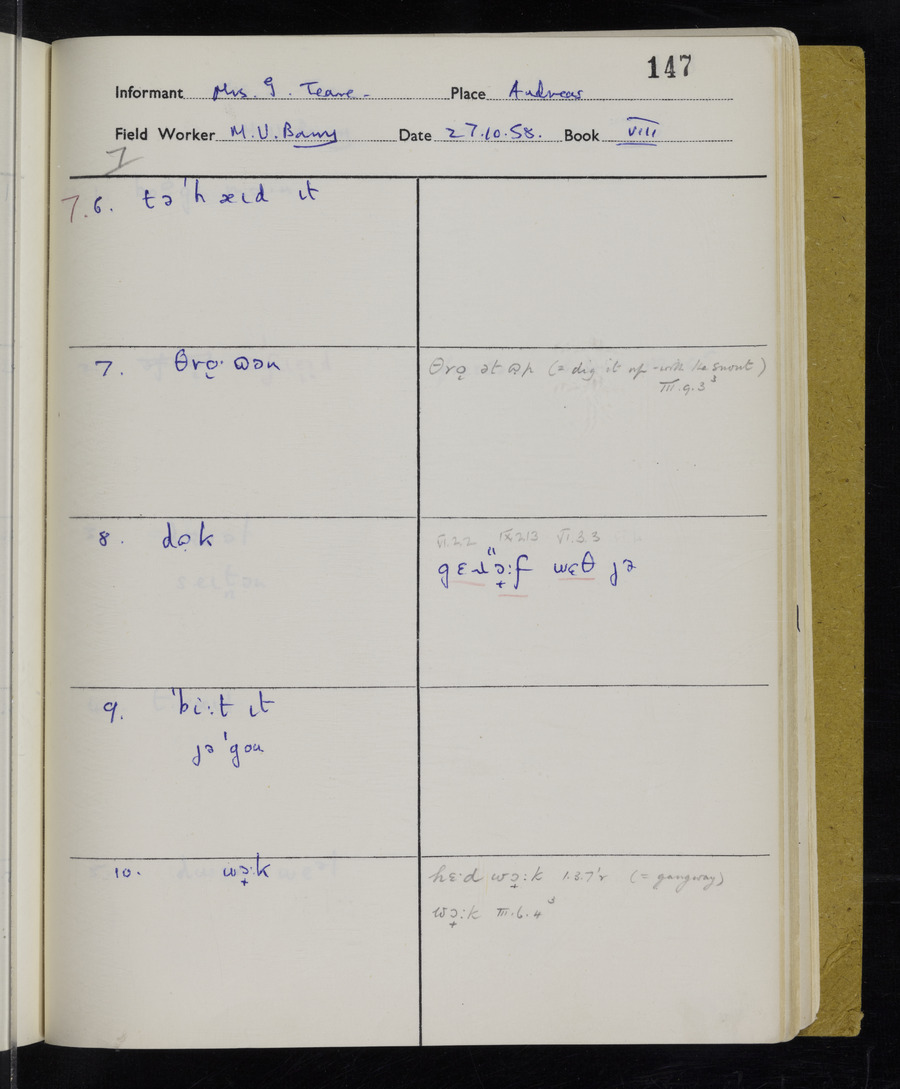 147
Informant Mrs. G. Teare - Place Andreas
Field Worker M.V. Barry Date 27.10.58. Book VIII
I
7.6. tə'hæɪd ɪt
7. θrọ· ɷən
θrọ ət ɷp (= dig it up with the snout)
III.9.3³
8. dɑ̣k
VI.2.2 IX.2.13 VI.3.3
gɛɹ"ɔ̟:f wɛθ jə
9. 'bi:t ɪt
jə'gou
10. wɔ̟:k
hɛ·d wɔ̟:k 1.3.7'r (= gangway)
wɔ̟:k III.6.4³